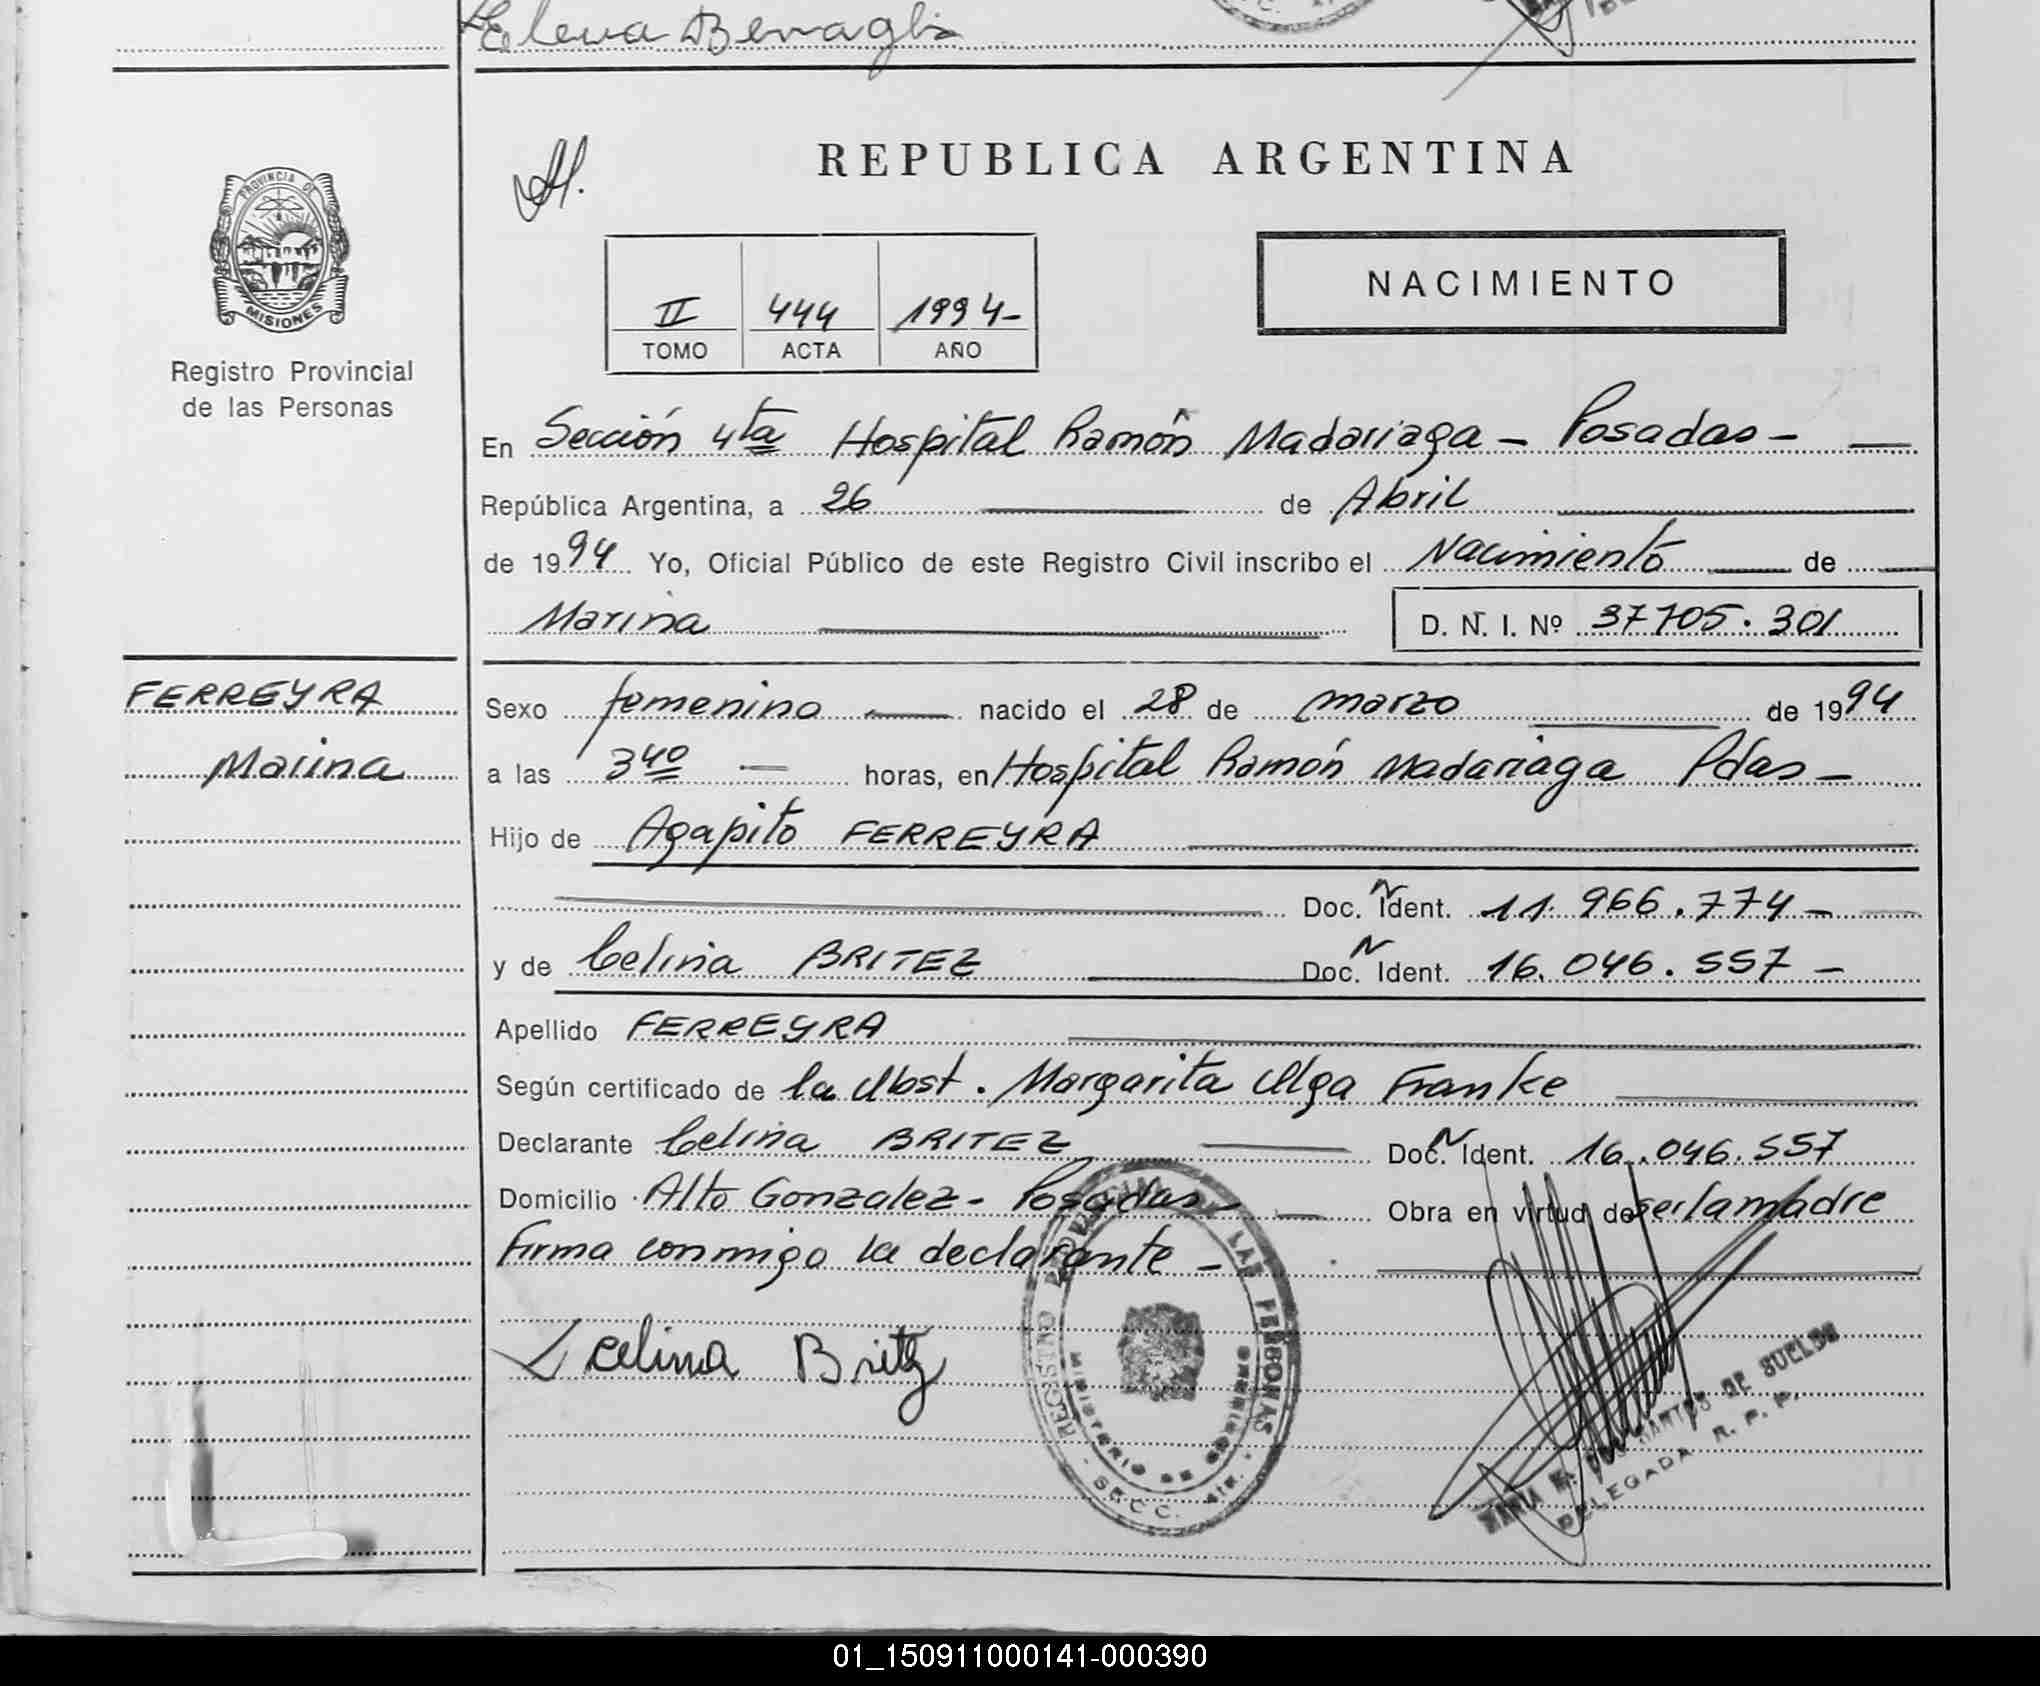 Elena Benaglia
REPUBLICA ARGENTINA
PROVINCIA DE
MISIONES
Registro Provincial
de las Personas
NACIMIENTO
II 444 1994-
TOMO ACTA AÑO
En Sección 4ta Hospital Ramón Madariaga - Posadas -
República Argentina, a 26 de Abril
de 1994 Yo, Oficial Público de este Registro Civil inscribo el Nacimiento de
Marina D. N. I. Nº 37705.301
FERREYRA
Marina
Sexo femenino nacido el 28 de marzo de 1994
a las 3 40 horas, en Hospital Ramón Madariaga Pdas -
Hijo de Agapito FERREYRA
Doc. N Ident. 11.966.774 -
y de Celina BRITEZ Doc. N Ident. 16.046.557 -
Apellido FERREYRA
Según certificado de la Obst. Margarita Olga Franke
Declarante Celina BRITEZ Doc. N Ident. 16.046.557
Domicilio Alto Gonzalez - Posadas Obra en virtud de ser la madre
Firma conmigo la declarante -
Celina Britz
REGISTRO PROVINCIAL DE LAS PERSONAS
MINISTERIO DE GOBIERNO
SECC.
DE SUELDO
DELEGADA R. P. P.
01_150911000141-000390